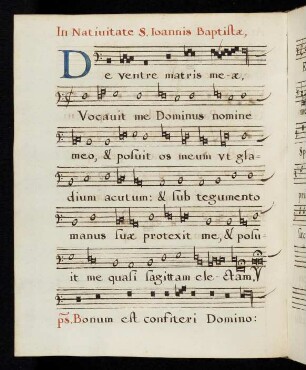 In Natiuitate S. Ioannis Baptistæ,
De ventre matris me-æ,
Vocauit me Dominus nomine
meo, & posuit os meum vt gla-
dium acutum: & sub tegumento
manus suæ protexit me, & posu-
it me quasi sagittam ele-ctam, V
ps. Bonum est confiteri Domino: